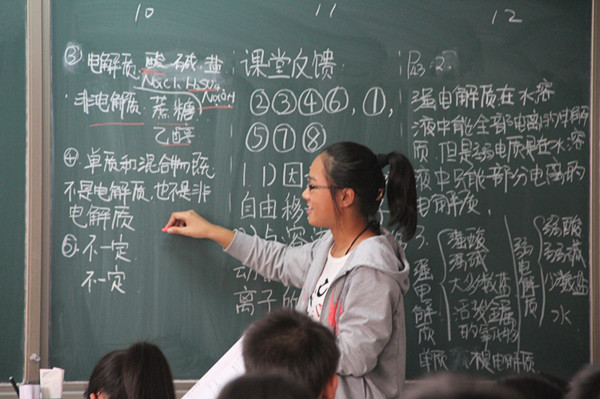 10
③ 电解质:酸.碱.盐
NaCl.H₂SO₄
NaOH
非电解质 蔗糖
乙醇
④ 单质和混合物既
不是电解质,也不是非
电解质
⑤ 不一定
不一定
11
课堂反馈:
②③④⑥,①,
⑤⑦⑧
1.1)因
自由移
离子的
12
P53 2.
强电解质:在水溶
液中能全部电离的电解
质.但是弱电解质是在水溶
液中只能部分电离的
电解质.
3.
强电解质
强酸
强碱
大多数盐
活泼金属
的氧化物
弱电解质
弱酸
弱碱
少数盐
水
单质 不是电解质